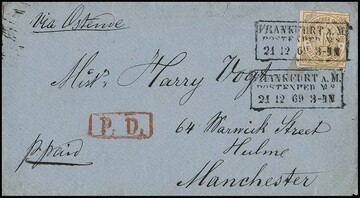 via Ostende
FRANKFURT A.M.
POSTEXPED. № 2
21 12 69 3-4N
Mistr. Harry Vogt
FRANKFURT A.M.
POSTEXPED. № 2
21 12 69 3-4N
P. D.
64 Warwick Street
Hulme
p. paid
Manchester